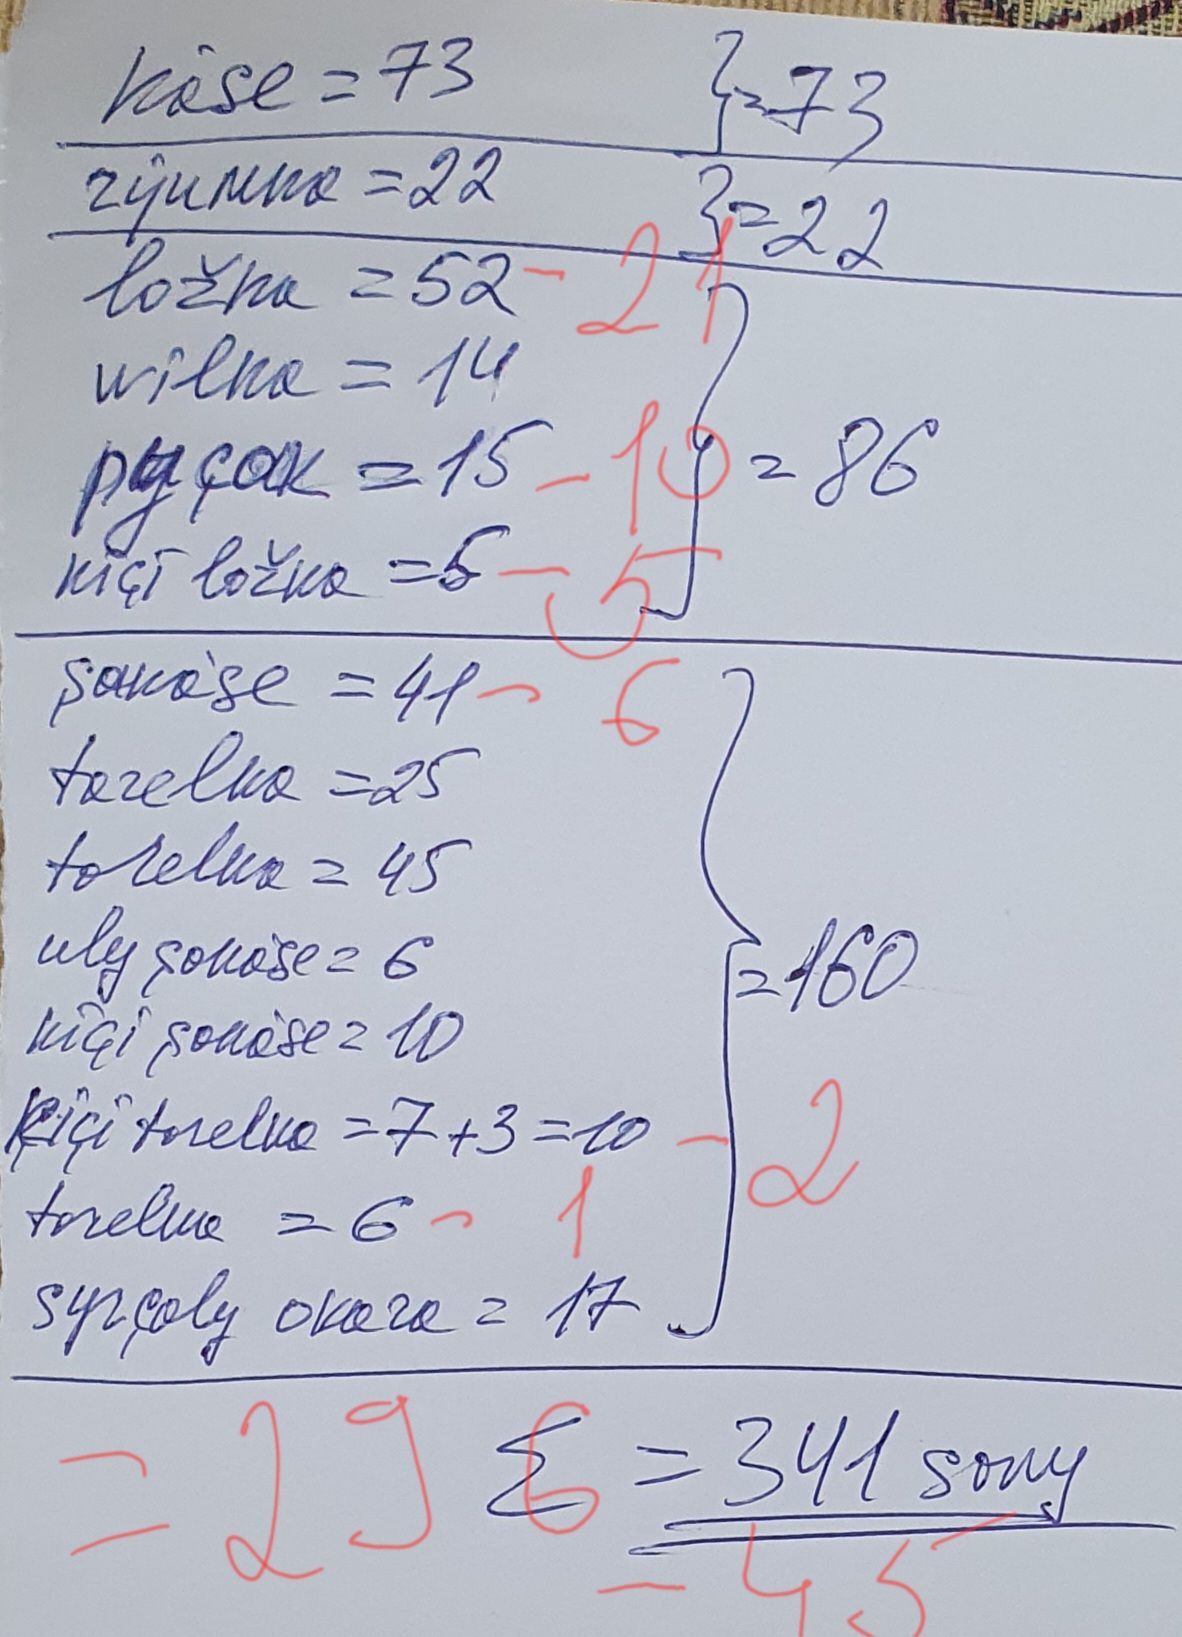 käse = 73 } = 73
rýumka = 22 } = 22
ložka = 52 - 21
wilka = 14
pyçak = 15 - 10 } = 86
kiçi ložka = 5 - 5
şakäse = 41 - 6
tarelka = 25
tarelka = 45
uly şakäse = 6 } = 160
kiçi şakäse = 10
kiçi tarelka = 7 + 3 = 10 - 2
tarelka = 6 - 1
syrçaly okara = 17
= 296 Σ = 341 sany
- 45